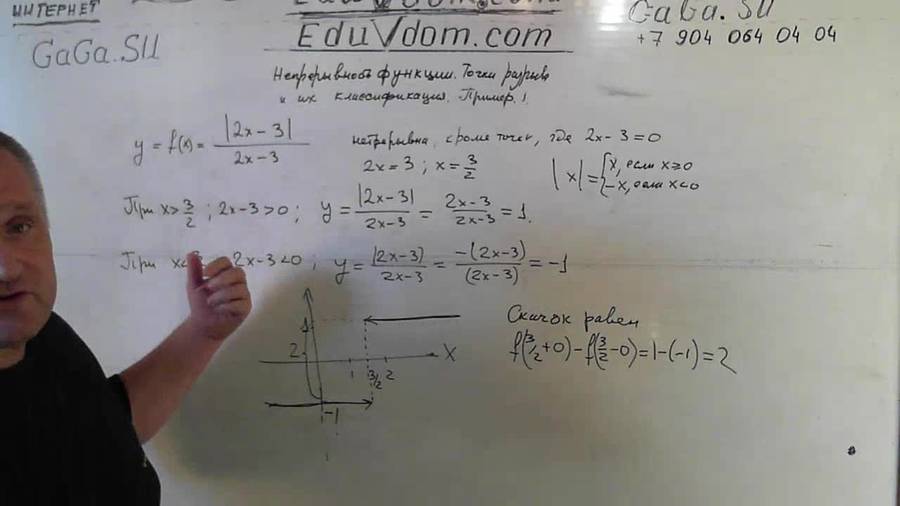 ИНТЕРНЕТ
GaGa.SU
EduVdom.com
GaGa.SU
+7 904 064 04 04
Непрерывность функции. Точки разрыва
и их классификация. Пример. 1.
y = f(x) = |2x-3| / 2x-3
непрерывна, кроме точек, где 2x-3=0
2x=3 ; x=3/2
|x|={x, если x≥0
-x, если x<0
При x>3/2 ; 2x-3>0 ; y = |2x-3| / 2x-3 = 2x-3 / 2x-3 = 1.
При x< 2x-3<0 ; y = |2x-3| / 2x-3 = -(2x-3) / (2x-3) = -1
Скачок равен
f(3/2+0)-f(3/2-0)=1-(-1)=2
1
2
1 3/2 2 X
-1